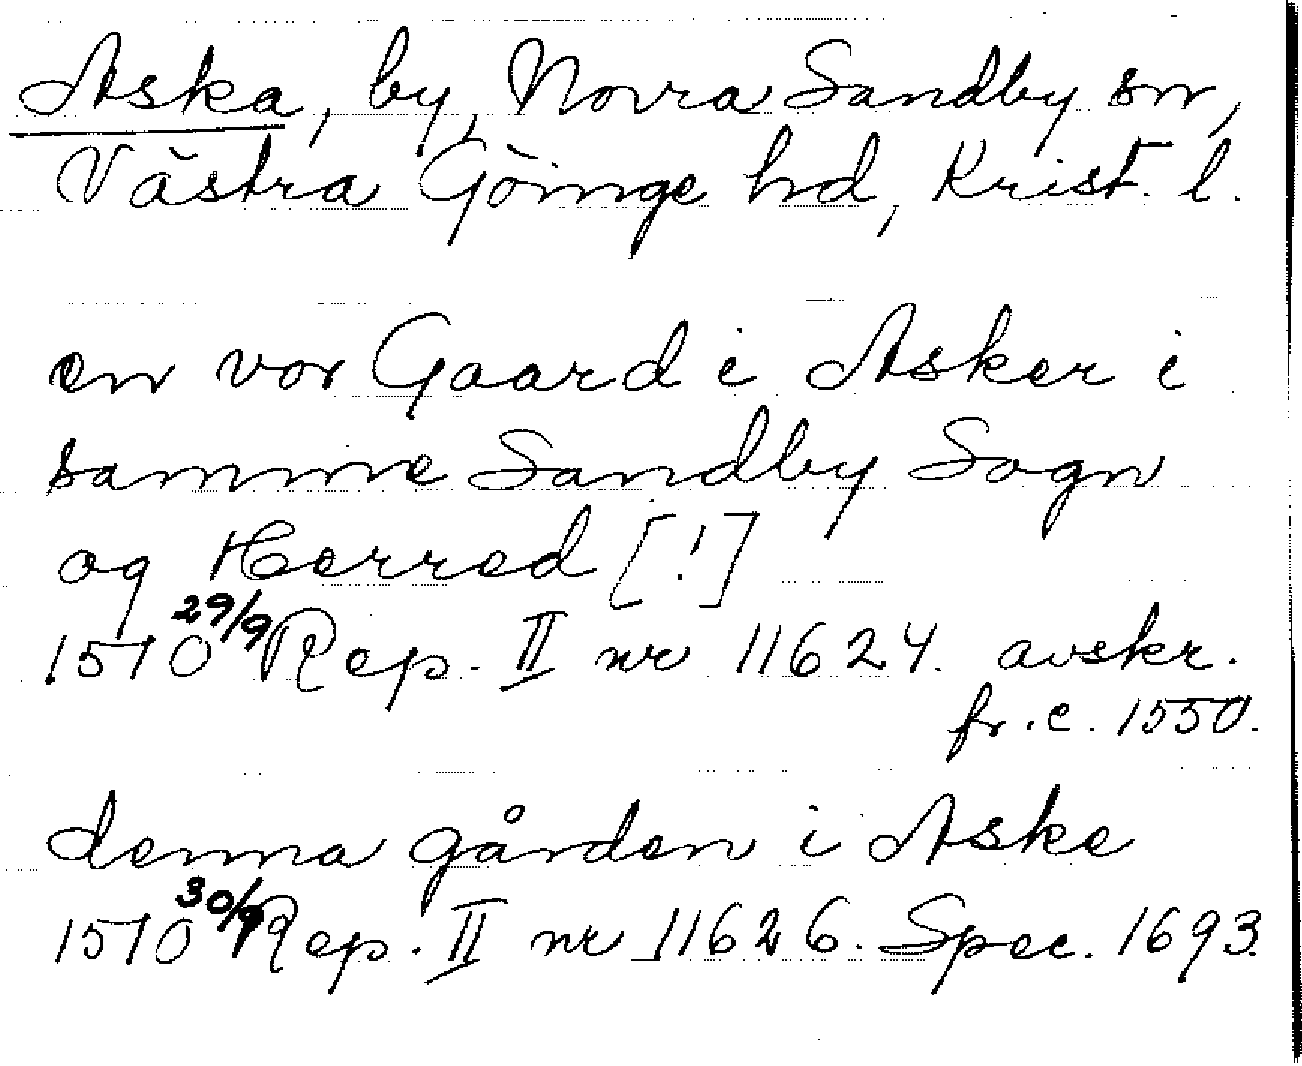 Aska, by, Norra Sandby sn,
Västra Göinge hd, Krist. l.
en vor Gaard i Asker i
samme Sandby Sogn
og Herred [!]
1510 29/9 Rep. II nr 11624. avskr.
fr. c. 1550.
denna gården i Aske
1510 30/9 Rep. II nr 11626. Spec. 1693.